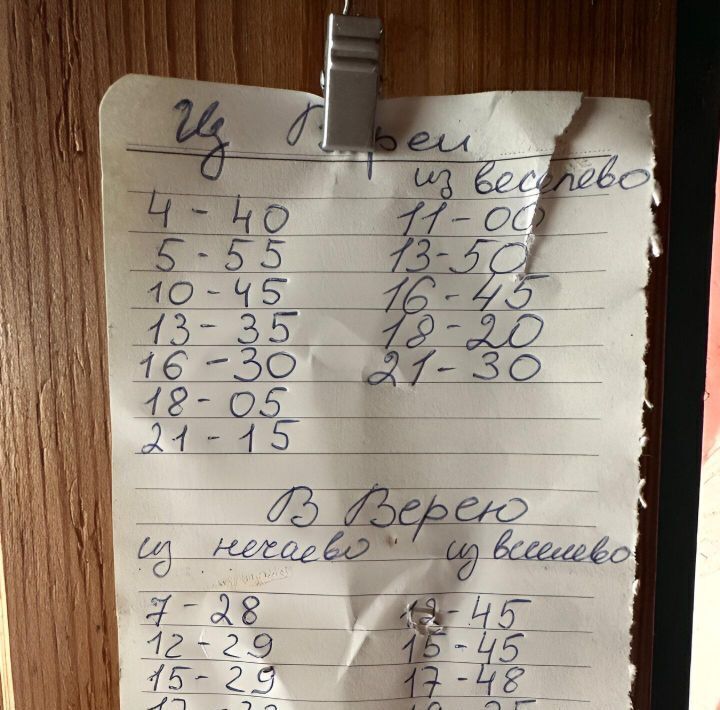 Из Вереи
из веселево
4 - 40 11 - 00
5 - 55 13 - 50
10 - 45 16 - 45
13 - 35 18 - 20
16 - 30 21 - 30
18 - 05
21 - 15
В Верею
из нечаево из веселево
7 - 28 12 - 45
12 - 29 15 - 45
15 - 29 17 - 48